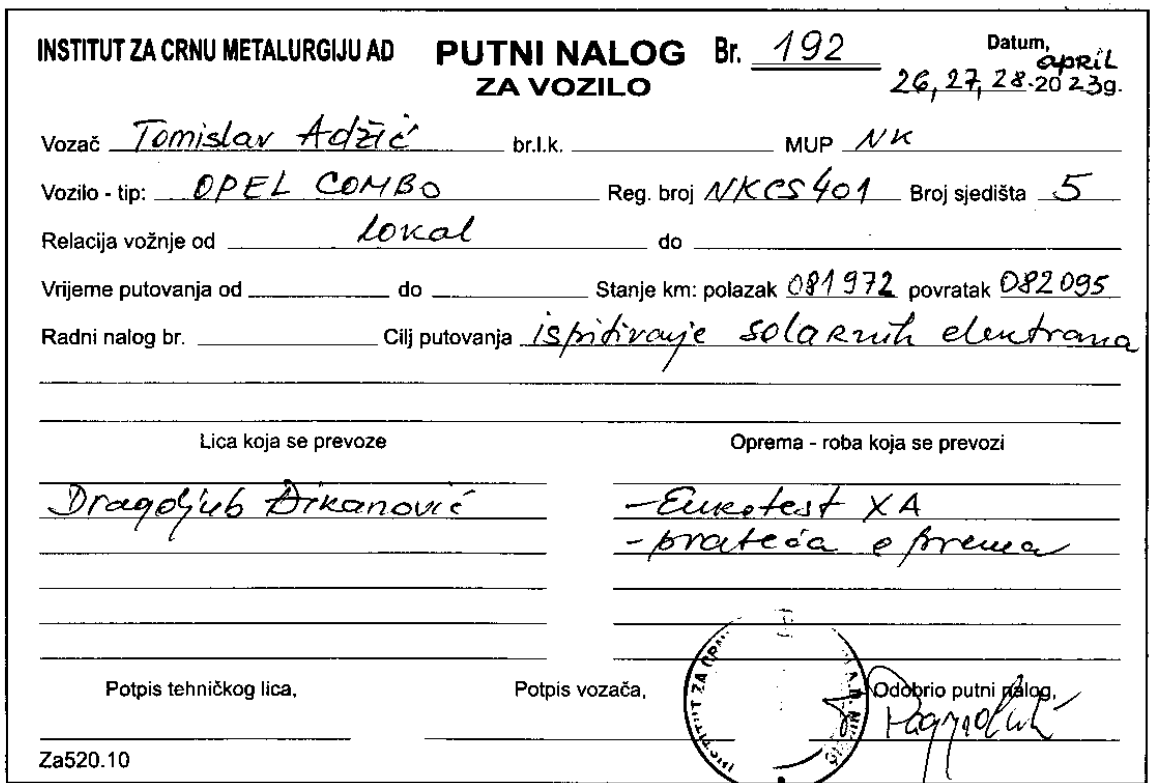 INSTITUT ZA CRNU METALURGIJU AD PUTNI NALOG Br. 192 Datum,
ZA VOZILO april
26, 27, 28-2023g.
Vozač Tomislav Adžić br.l.k. MUP NK
Vozilo - tip: OPEL COMBO Reg. broj NKCS401 Broj sjedišta 5
Relacija vožnje od lokal do
Vrijeme putovanja od do Stanje km: polazak 081972 povratak 082095
Radni nalog br. Cilj putovanja ispitivanje solarnih elektrana
Lica koja se prevoze Oprema - roba koja se prevozi
Dragoljub Đikanović -Eurotest XA
-prateća oprema
Potpis tehničkog lica, Potpis vozača, Odobrio putni nalog,
Za520.10